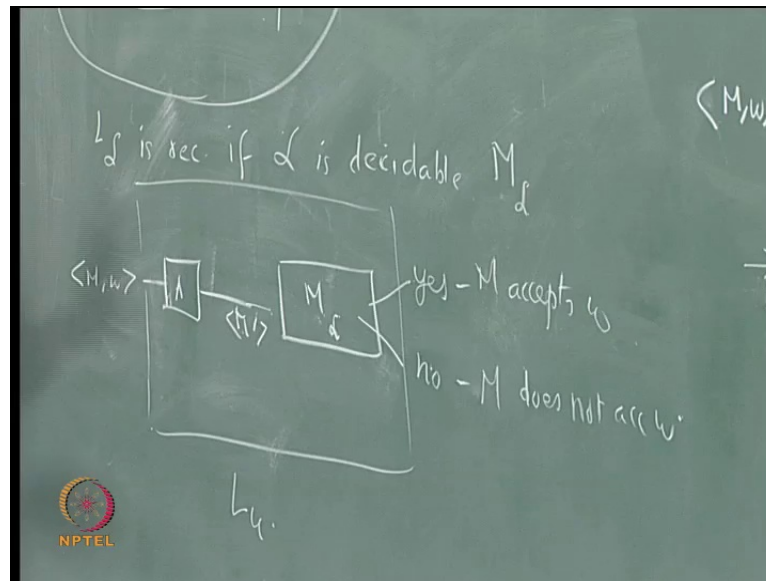 ⟨M,w⟩
L_𝓛 is rec. if 𝓛 is decidable M_𝓛
⟨M,w⟩
A
⟨M'⟩
M_𝓛
yes - M accepts w
no - M does not acc w.
L_u.
NPTEL